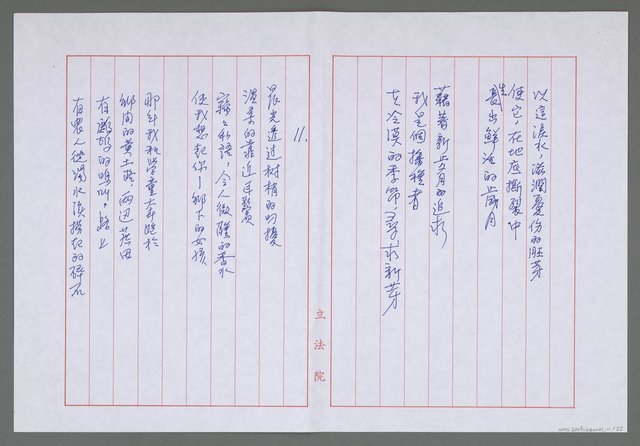 以這淚水，滋潤憂傷的胚芽
使它，在地底撕裂中
長出鮮活的歲月
藉著新歲月的追求
我是個播種者
在冷漠的季節尋求新芽
立法院
11.
晨光透過樹梢的
溫柔的靠近耳鬢
竊竊私語，令人微醺的香水
使我想起你——鄉下的女孩
那年我和學童奔跑於
鄉間的黃土路，兩邊
有的鳴叫，路上
有農人從濁水溪撈起的碎石